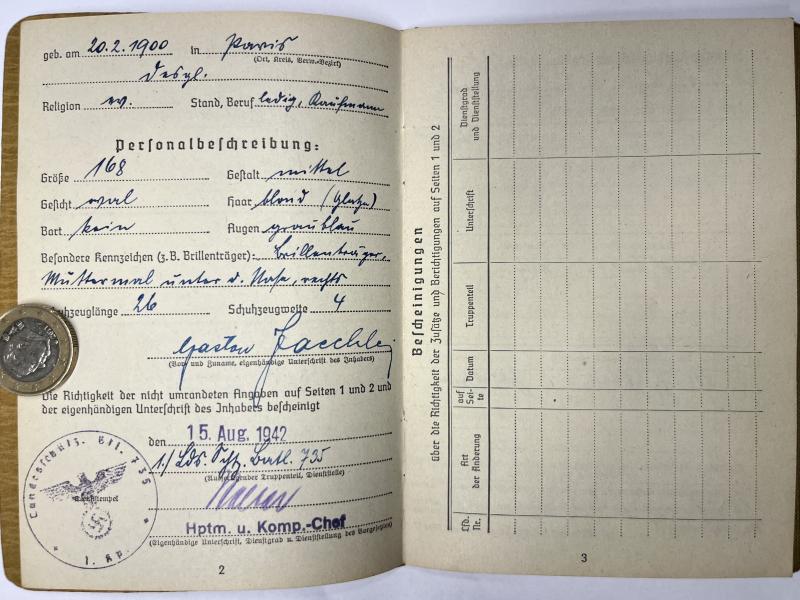 geb. am 20.2.1900 in Paris
(Ort, Kreis, Verw.-Bezirk)
desgl.
Religion ev. Stand, Beruf ledig, Kaufmann
Personalbeschreibung:
Größe 168 Gestalt mittel
Gesicht oval Haar blond (Glatze)
Bart kein Augen graublau
Besondere Kennzeichen (z.B. Brillenträger): Brillenträger,
Muttermal unter d. Nase, rechts
Schuhzeuglänge 26 Schuhzeugweite 4
Gaston
(Vor- und Zuname, eigenhändige Unterschrift des Inhabers)
Die Richtigkeit der nicht umrandeten Angaben auf Seiten 1 und 2 und
der eigenhändigen Unterschrift des Inhabers bescheinigt
den 15. Aug. 1942
1./Lds. Schtz. Batl. 735
(Ausfertigender Truppenteil, Dienststelle)
Hptm. u. Komp.-Chef
(Eigenhändige Unterschrift, Dienstgrad u. Dienststellung des Vorgesetzten)
Landesschütz. Btl. 735
Dienststempel
* 1. Kp. *
2
Bescheinigungen
über die Richtigkeit der Zusätze und Berichtigungen auf Seiten 1 und 2
Lfd. Nr.
Art der Änderung
auf Sei-te
Datum
Truppenteil
Unterschrift
Dienstgrad und Dienststellung
3